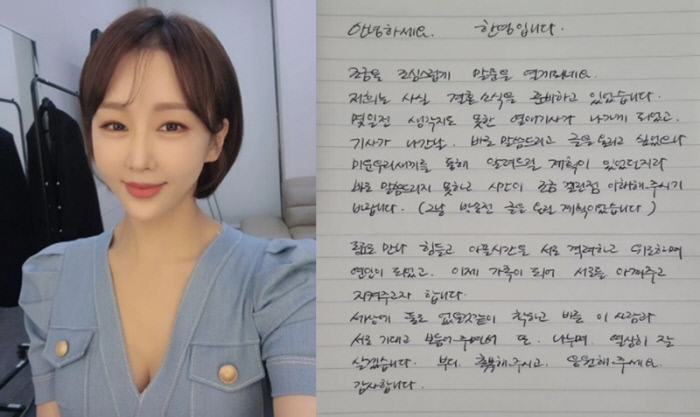 안녕하세요. 한영입니다.
조금은 조심스럽게 말문을 열게되네요.
저희는 사실 결혼소식을 준비하고 있었습니다.
몇일전 생각지도 못한 열애기사가 나가게 되었고,
기사가 나간날, 바로 말씀드리고 글을 올리고 싶었으나
미운우리새끼를 통해 알려드릴 계획이 있었던터라
바로 말씀드리지 못하고 시간이 조금 걸린점 이해해주시기
바랍니다. (그날 방송전 글을 올릴 계획이었습니다)
만나 힘들고 아픈시간을 서로 격려하고 위로하며
연인이 되었고, 이제 가족이 되어 서로를 아껴주고
지켜주고자 합니다.
세상에 둘도 없을것같이 착하고 바른 이 사람과
서로 기대고 보듬어주면서 또, 나누며, 열심히 잘
살겠습니다. 부디 축복해주시고, 응원해주세요.
감사합니다.